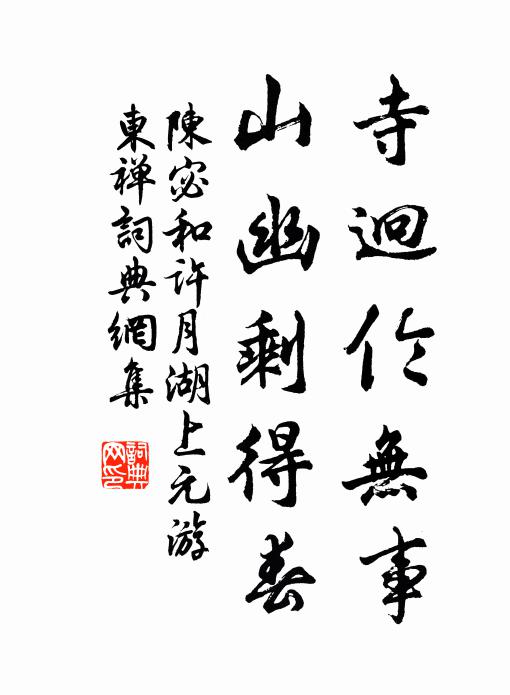 寺逈伶無事
山幽剩得春
陳宓和許月湖上元游
東禅詞典網集
詞典
网印